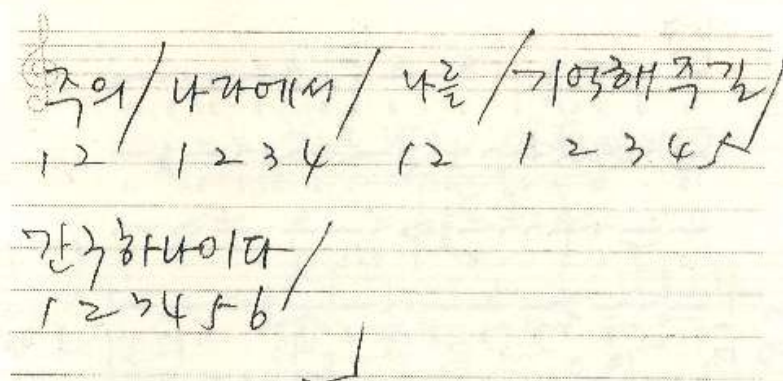 주의/나라에서/나를/기억해주길/
12 1234 12 12345
간구하나이다/
123456